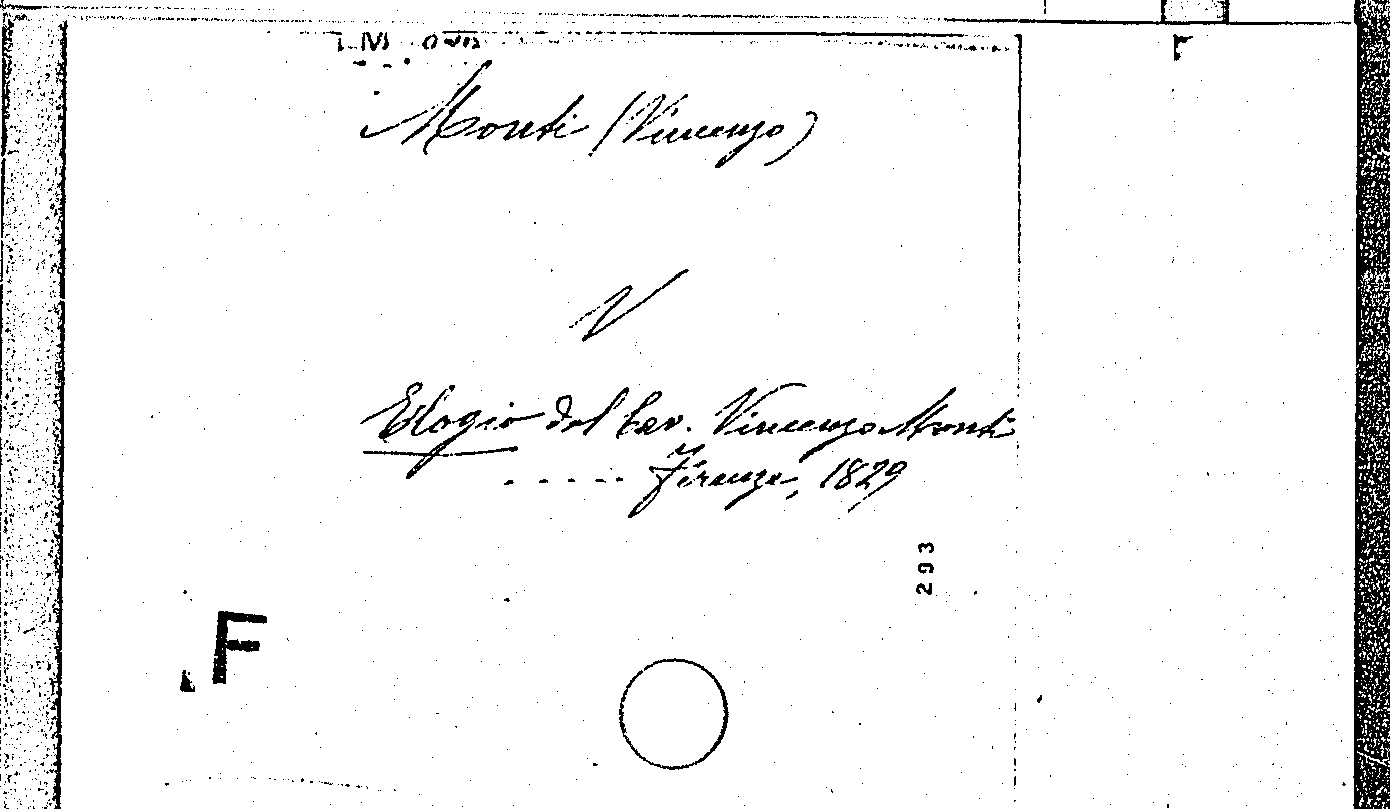 Monti (Vincenzo)
V
Elogio del Cav. Vincenzo Monti
- - - - - Firenze, 1829
293
F